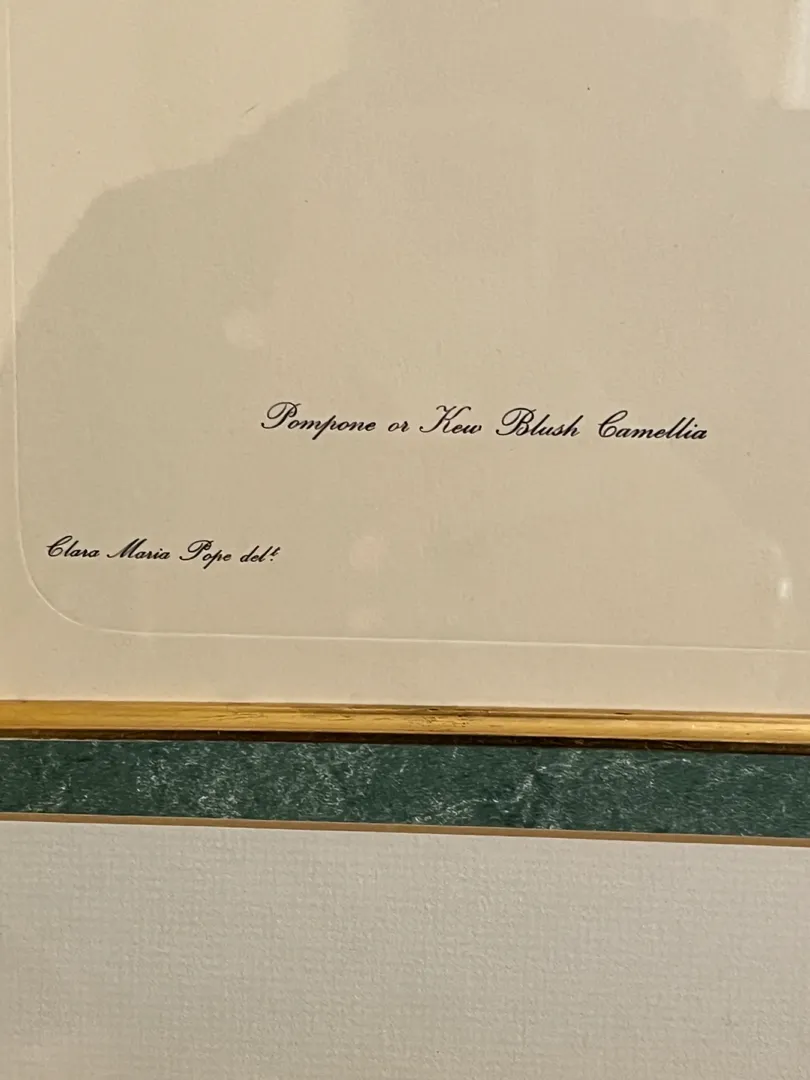 Pompone or Kew Blush Camellia
Clara Maria Pope delt.